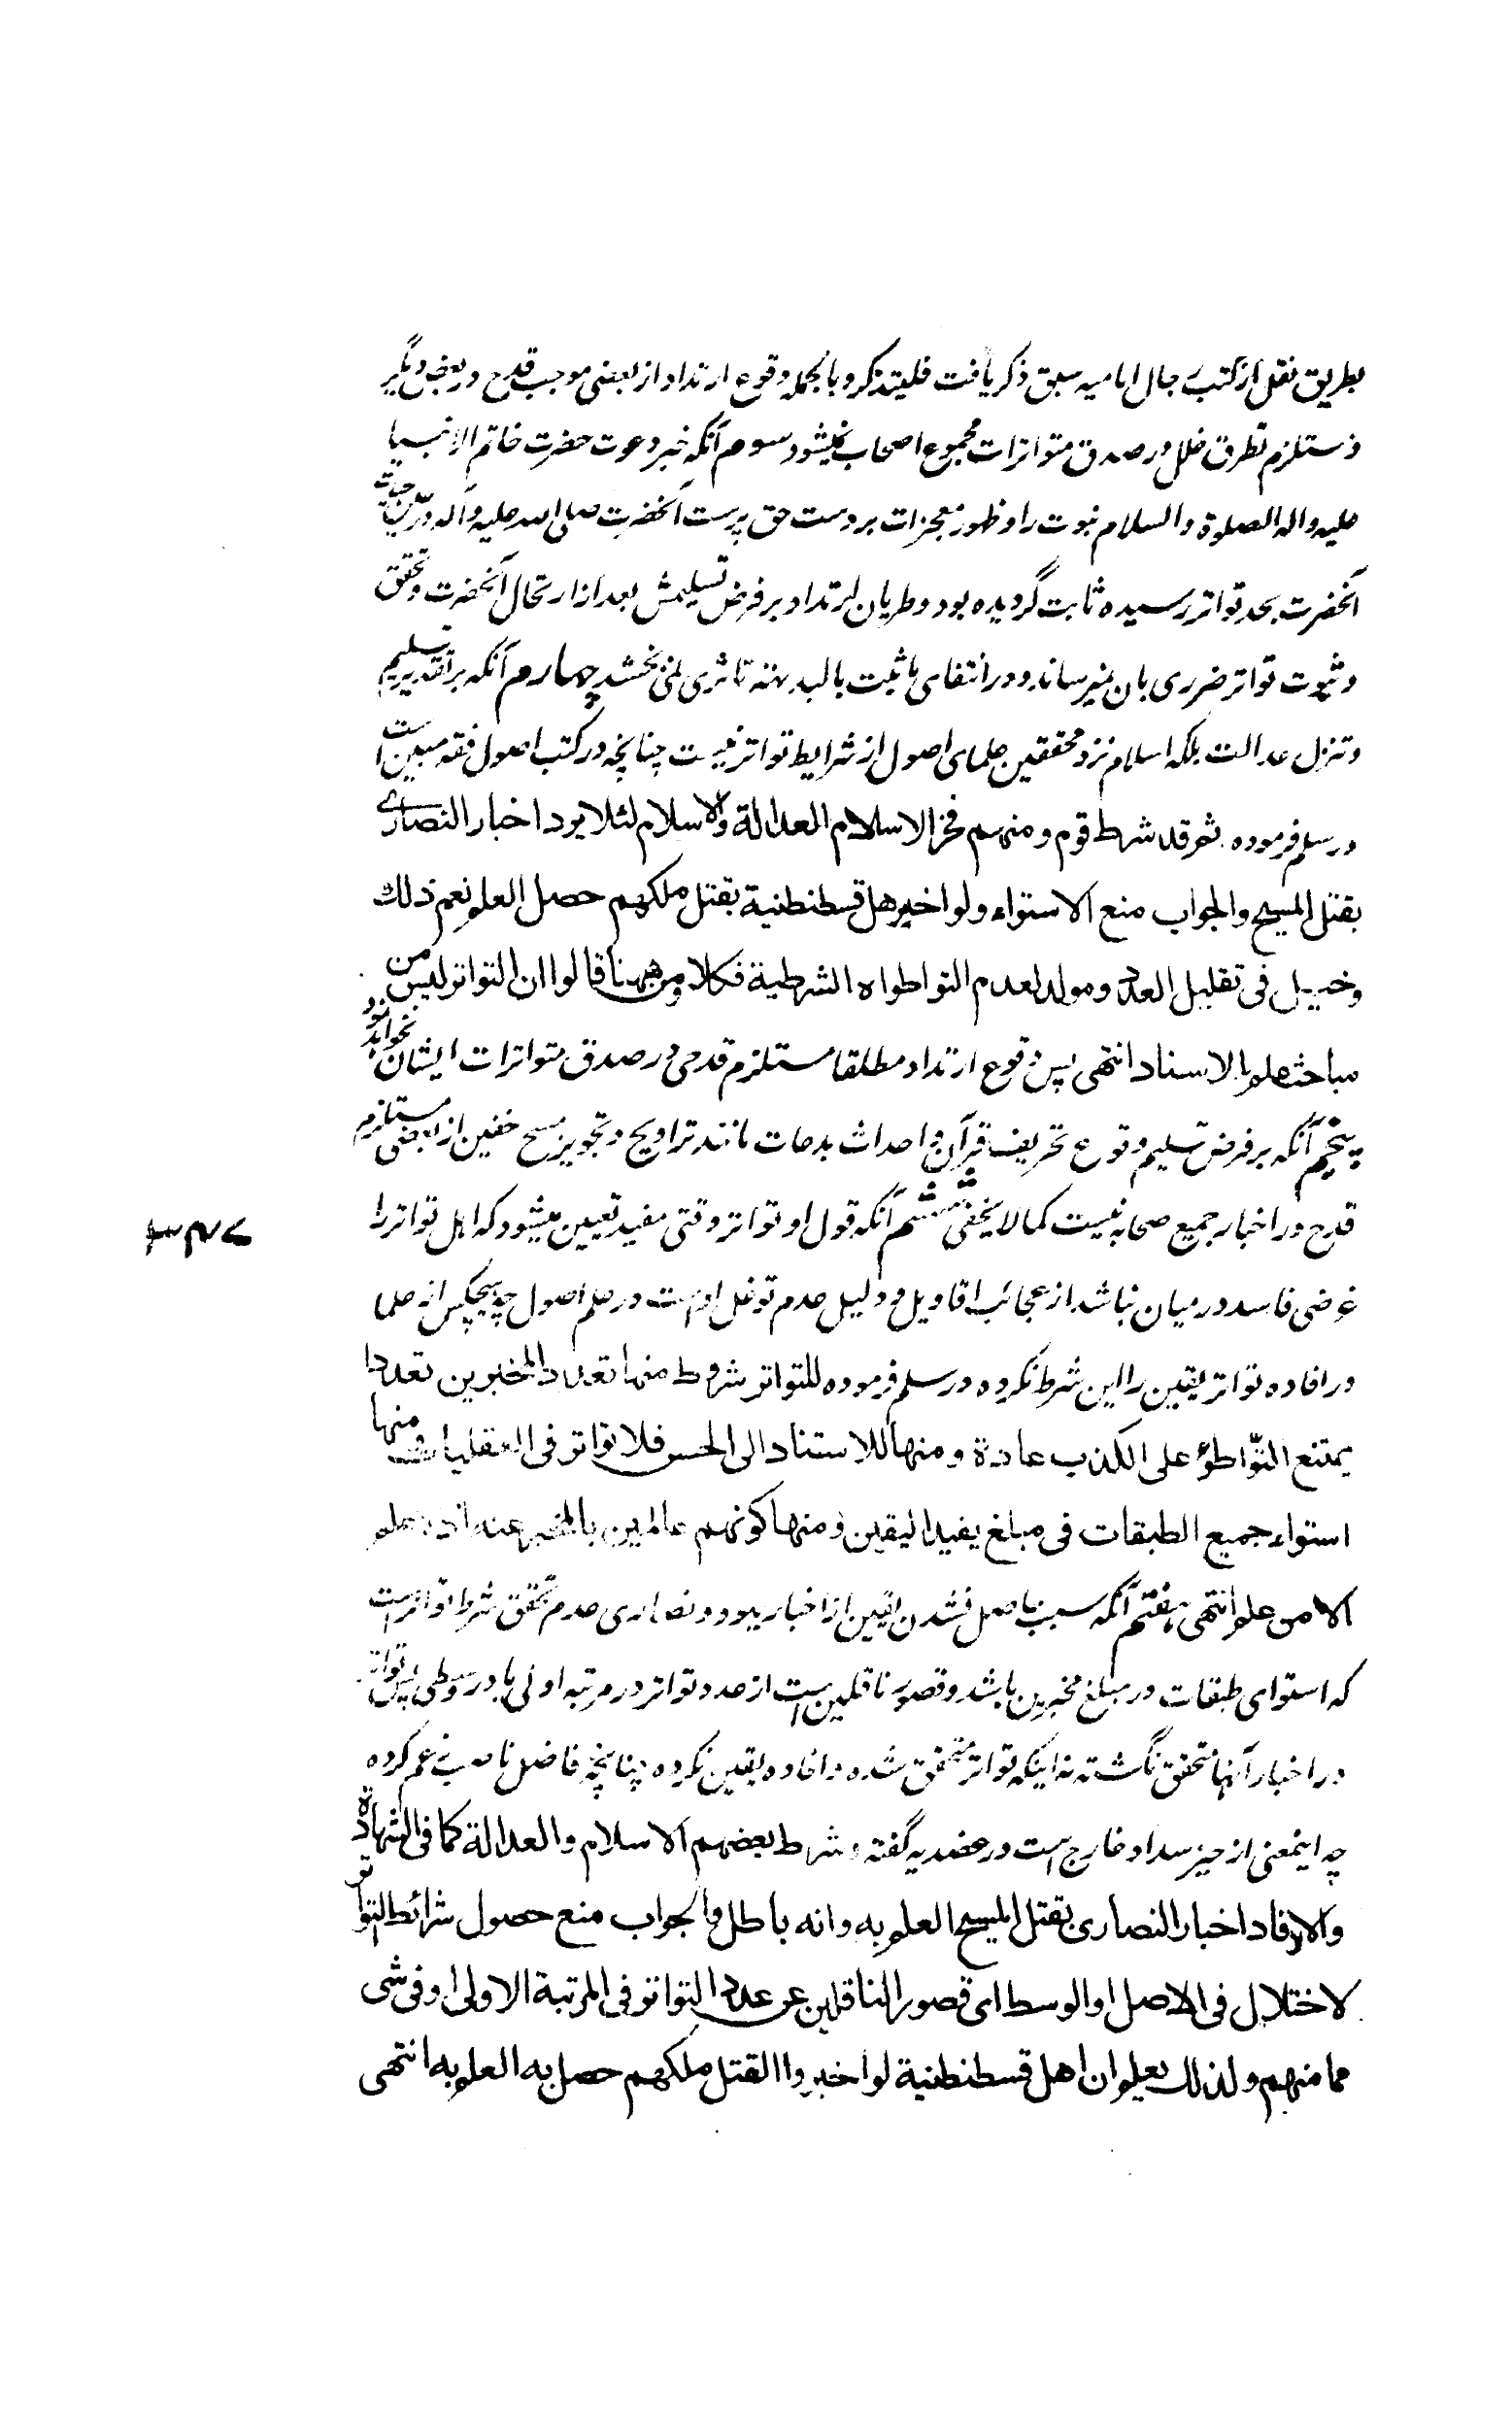 بطریق نقل از کتب رجال امامیه سبق ذکر یافت فلیتذکر و بالجمله وقوع ارتداد از بعضی موجب قدح در بعض دیگر
و مستلزم تطرق خلل در صدق متواترات مجموع اصحاب نمیشود سوم آنکه خبر دعوت حضرت خاتم الانبیا
علیه و اله الصلوة و السلام نبوت را و ظهور معجزات بر دست حق پرست آنحضرت صلی الله علیه و آله در حین حیات
آنحضرت بحد تواتر رسیده ثابت گردیده بود و طریان ارتداد بر فرض تسلیمش بعد از ارتحال آنحضرت و تحقق
و ثبوت تواتر ضرری بان نمیرساند و در انتفای ما ثبت بالبدیهه تاثری نمی بخشد چهارم آنکه بر تقدیر تسلیم
و تنزل عدالت بلکه اسلام نزد محققین علمای اصول از شرایط تواتر نیست چنانچه در کتب اصول فقه مبین است
در سلم فرموده ثم قد شرط قوم و منهم فخر الاسلام العدالة والاسلام لئلا یرد اخبار النصاری
بقتل المسیح والجواب منع الاستواء ولو اخبر اهل قسطنطنیة بقتل ملکهم حصل العلم نعم ذلک
دخیل فی تقلیل العدد ومولد لعدم التواطؤ اما الشرطیة فکلا ومن ههنا قالوا ان التواتر لیس من
مباحث علم الاسناد انتهی پس وقوع ارتداد مطلقا مستلزم قدحی در صدق متواترات ایشان نخواهد بود
پنجم آنکه بر فرض تسلیم وقوع تحریف قرآن و احداث بدعات مانند تراویح و تجویز مسح خفین از بعضی مستلزم
قدح در اخبار جمیع صحابه نیست کما لا یخفی ششم آنکه قول او تواتر وقتی مفید تعیین میشود که اهل تواتر را
غرضی فاسد در میان نباشد از عجائب اقاویل و دلیل عدم توغل اوست در علم اصول چه هیچکس از علما
در افاده تواتر یقین را این شرط نکرده در سلم فرموده للتواتر شروط منها تعدد المخبرین تعددا
یمتنع التّواطؤ علی الکذب عادة ومنها الاستناد الی الحس فلا تواتر فی العقلیات ومنها
استواء جمیع الطبقات فی مبلغ یفید الیقین ومنها کونهم عالمین بالمخبر عنه اذ لا علم
الا من علم انتهی هفتم آنکه سبب حاصل نشدن یقین از اخبار یهود و نصاری عدم تحقق شرط تواتر است
که استوای طبقات در مبلغ مخبرین باشد و قصور ناقلین است از عدد تواتر در مرتبه اولی یا در وسطی پس تواتر
در اخبار آنها متحقق نگشته نه اینکه تواتر متحقق شده و افاده یقین نکرده چنانچه فاضل ناصب زعم کرده
چه اینمعنی از حیز سداد خارج است در عضدیه گفته و شرط بعضهم الاسلام والعدالة کما فی الشهادة
والا لافاد اخبار النصاری بقتل المسیح العلم به وانه باطل والجواب منع حصول شرائط التواتر
لاختلال فی الاصل او الوسط ای قصور الناقلین عن عدد التواتر فی المرتبة الاولی او فی شی
مما منهم ولذلک یعلم ان اهل قسطنطنیة لو اخبروا القتل ملکهم حصل به العلم به انتهی